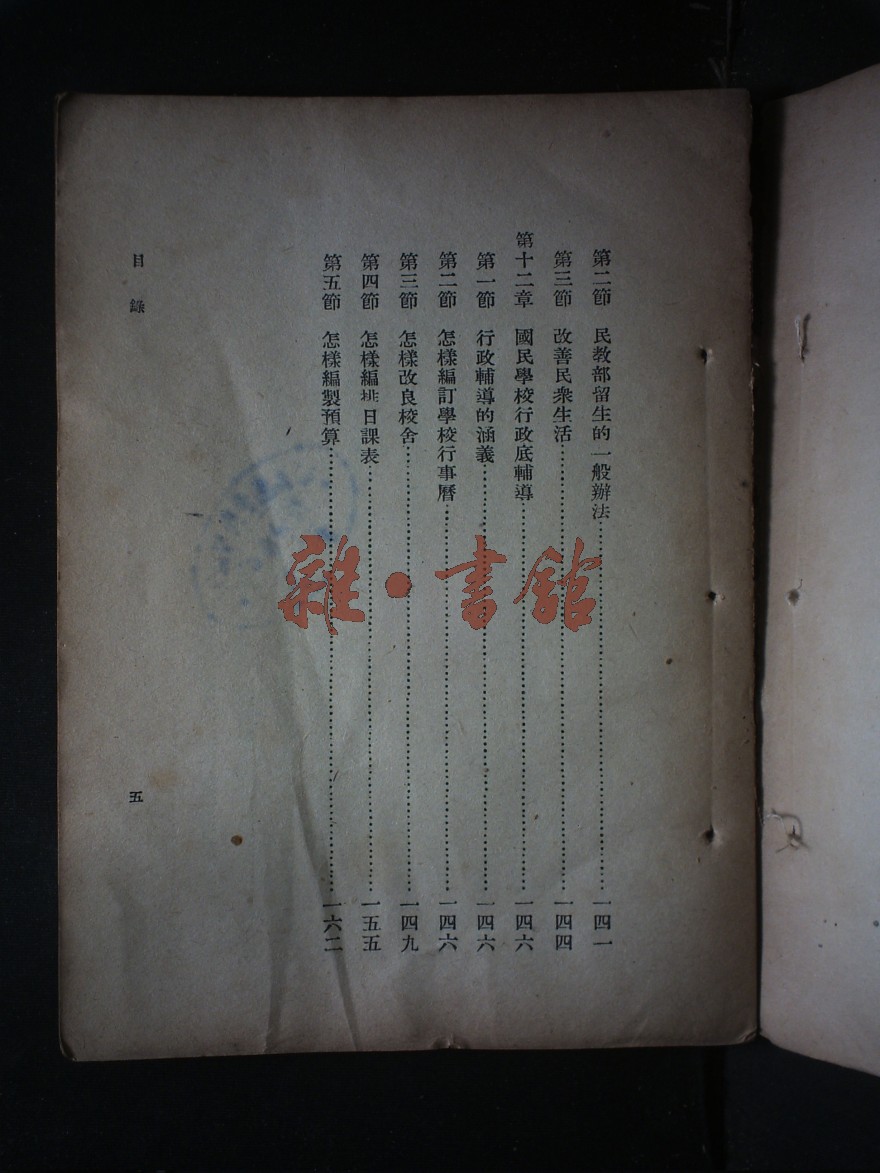 第二節 民教部留生的一般辦法……一四一
第三節 改善民衆生活……一四四
第十二章 國民學校行政底輔導……一四六
第一節 行政輔導的涵義……一四六
第二節 怎樣編訂學校行事曆……一四六
第三節 怎樣改良校舍……一四九
第四節 怎樣編排日課表……一五五
第五節 怎樣編製預算……一六二
目錄
五
雜·書館